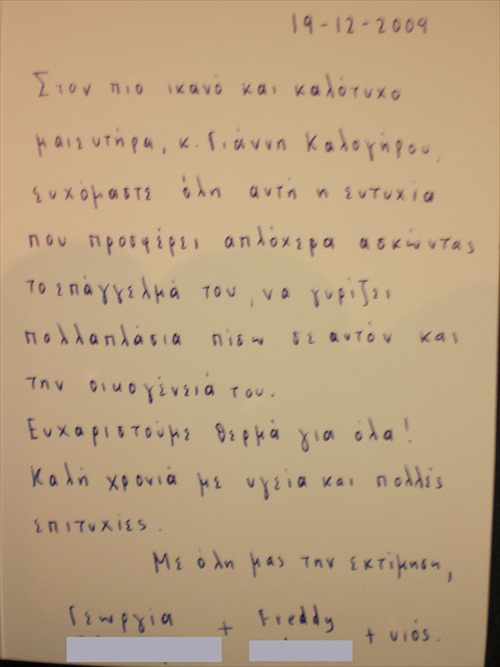 19-12-2009
Στον πιο ικανό και καλότυχο
μαιευτήρα, κ. Γιάννη Καλογήρου,
ευχόμαστε όλη αυτή η ευτυχία
που προσφέρει απλόχερα ασκώντας
το επάγγελμά του, να γυρίζει
πολλαπλάσια πίσω σε αυτόν και
την οικογένειά του.
Ευχαριστούμε θερμά για όλα!
Καλή χρονιά με υγεία και πολλές
επιτυχίες.
Με όλη μας την εκτίμηση,
Γεωργία + Freddy + υιός.